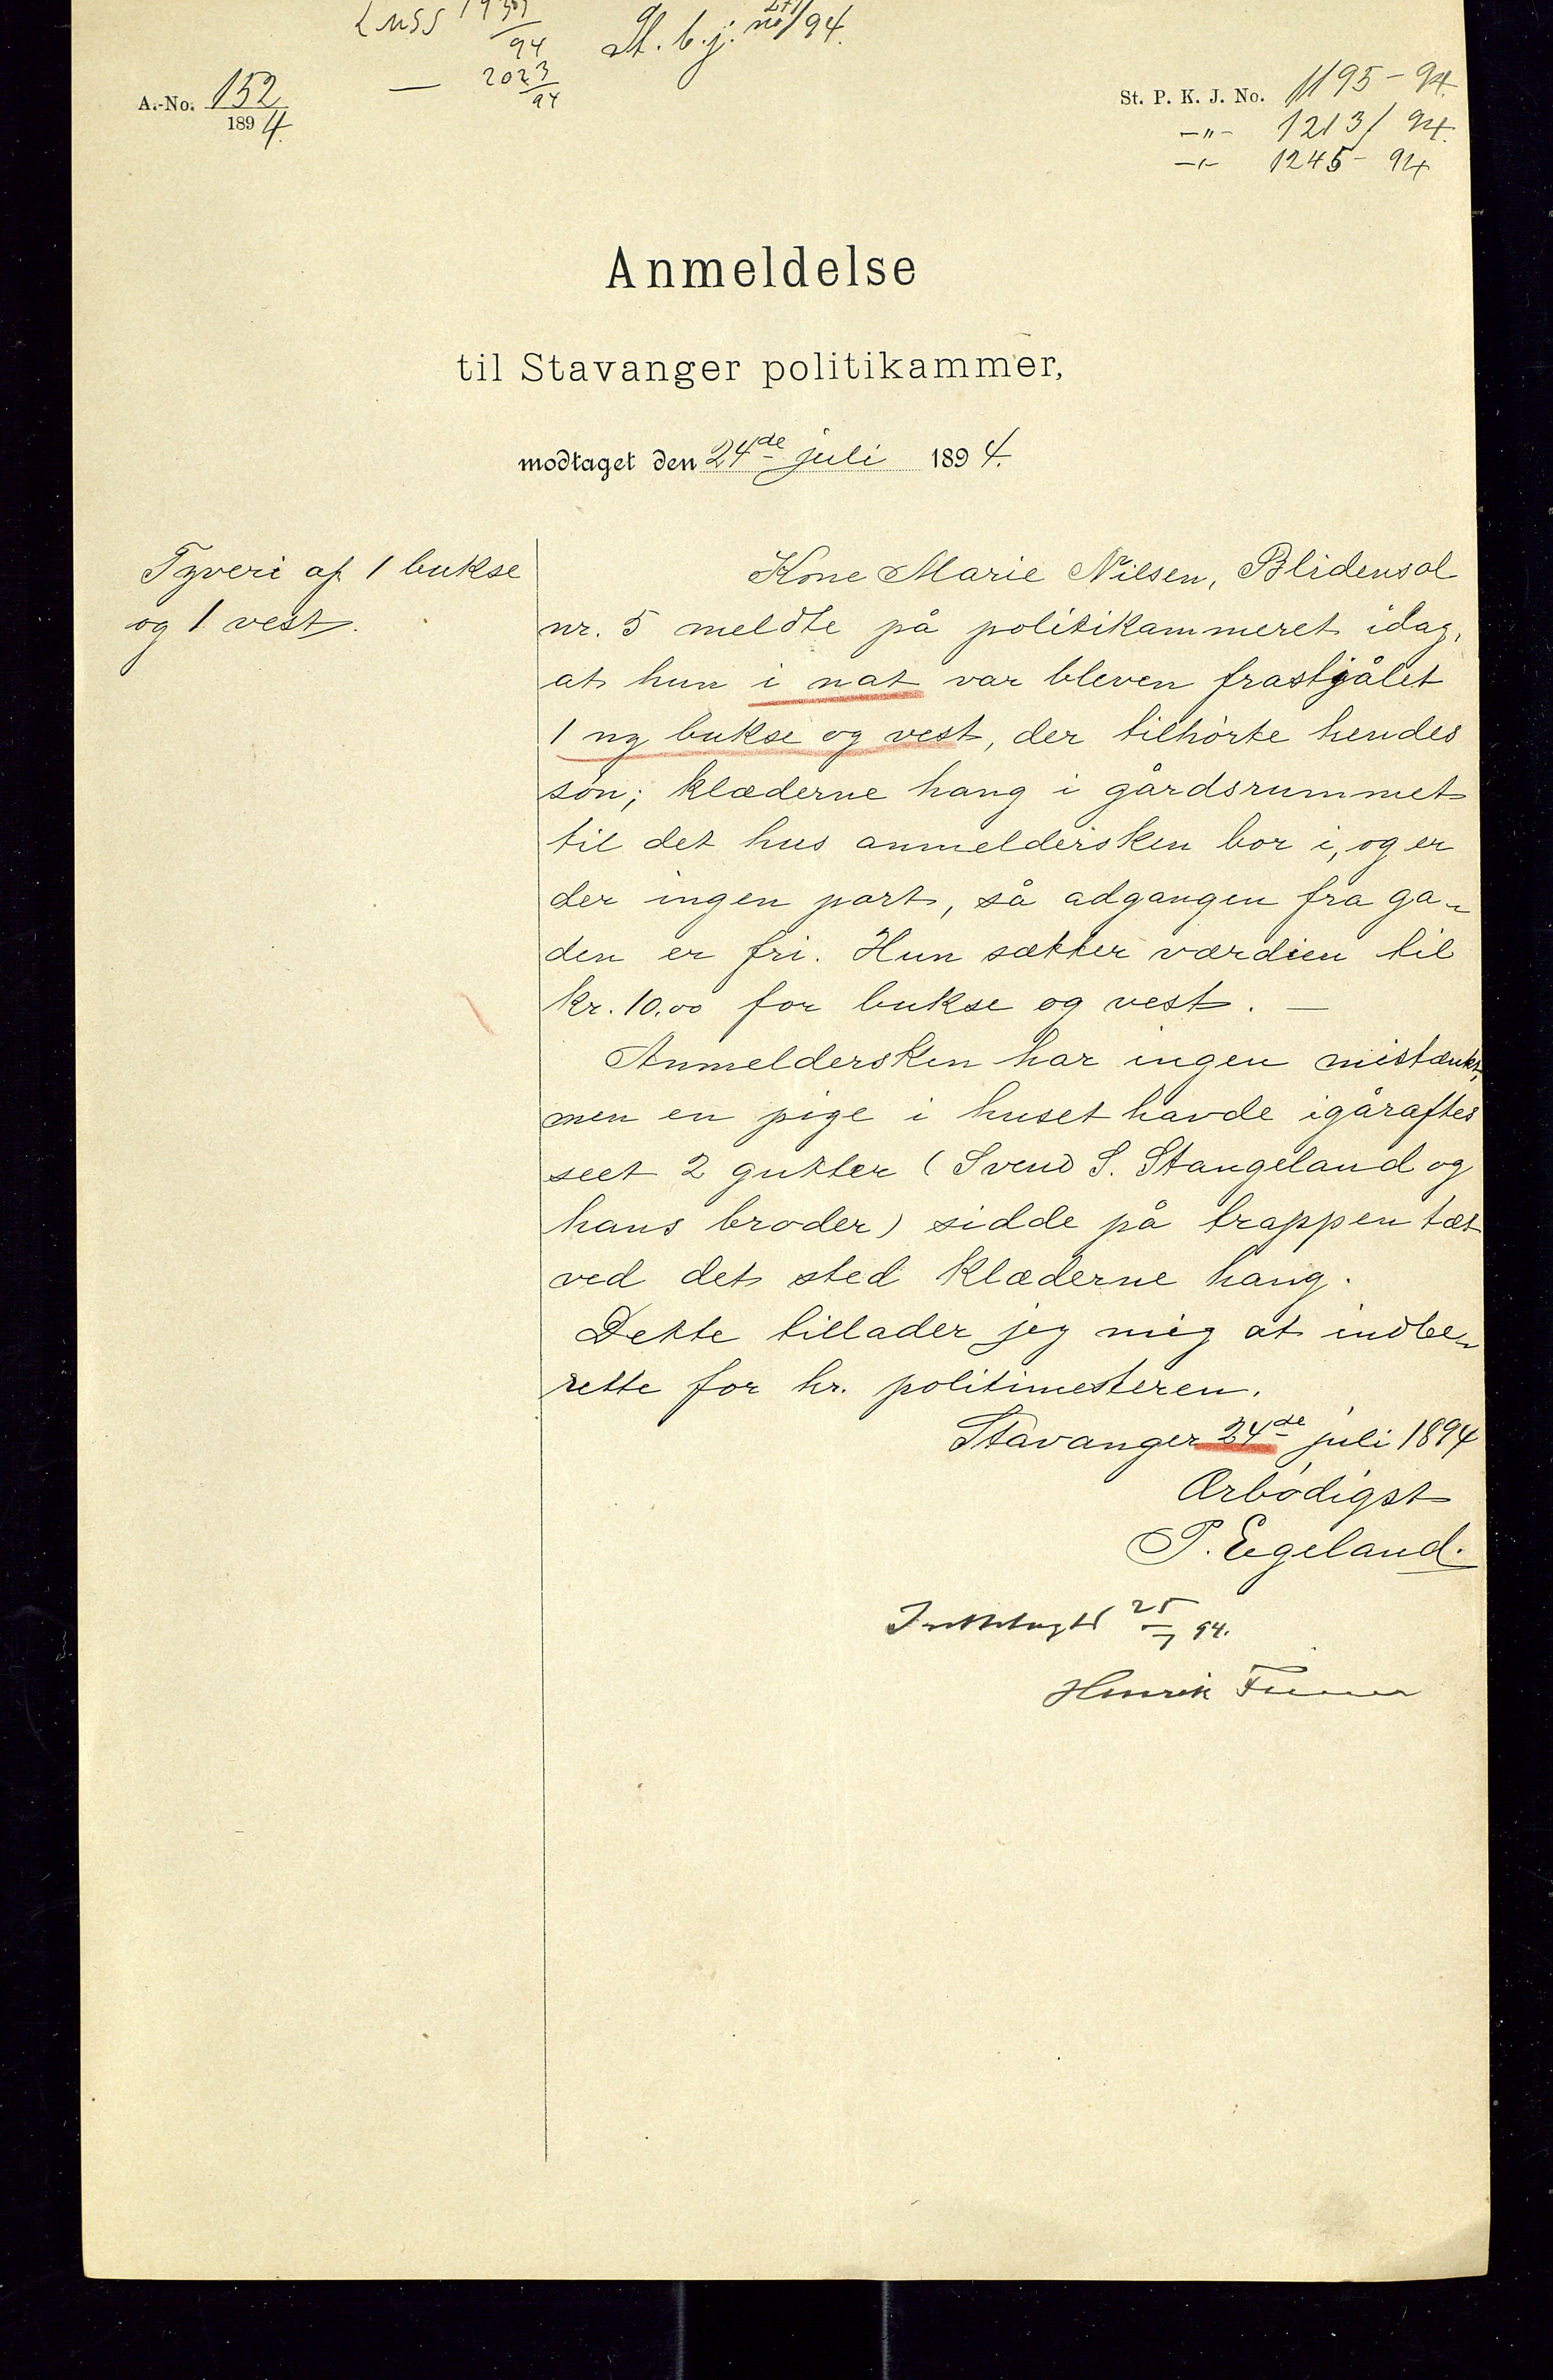 St. b. j. no /94.
94
— 2023
94
A.-No. 152
1894.
St. P. K. J. No. 1195-94.
-"- 1213/94.
-"- 1245-94
Anmeldelse
til Stavanger politikammer,
modtaget den 24de juli 1894.
Tyveri af 1 bukse
og 1 vest.
Kone Marie Nilsen, Blidensol
nr. 5 meldte på politikammeret idag,
at hun i nat var bleven frastjålet
1 ny bukse og vest, der tilhörte hendes
sön; klæderne hang i gårdsrummet
til det hus anmeldersken bor i, og er
der ingen port, så adgangen fra ga-
den er fri. Hun sætter værdien til
kr. 10.00 for bukse og vest. —
Anmeldersken har ingen mistænkt,
men en pige i huset havde igåraftes
seet 2 gutter (Svend S. Stangeland og
hans broder) sidde på trappen tæt
ved det sted klæderne hang.
Dette tillader jeg mig at indbe-
rette for hr. politimesteren.
Stavanger 24de juli 1894
Ærbödigst
P. Egeland.
25/7 94.
Henrik